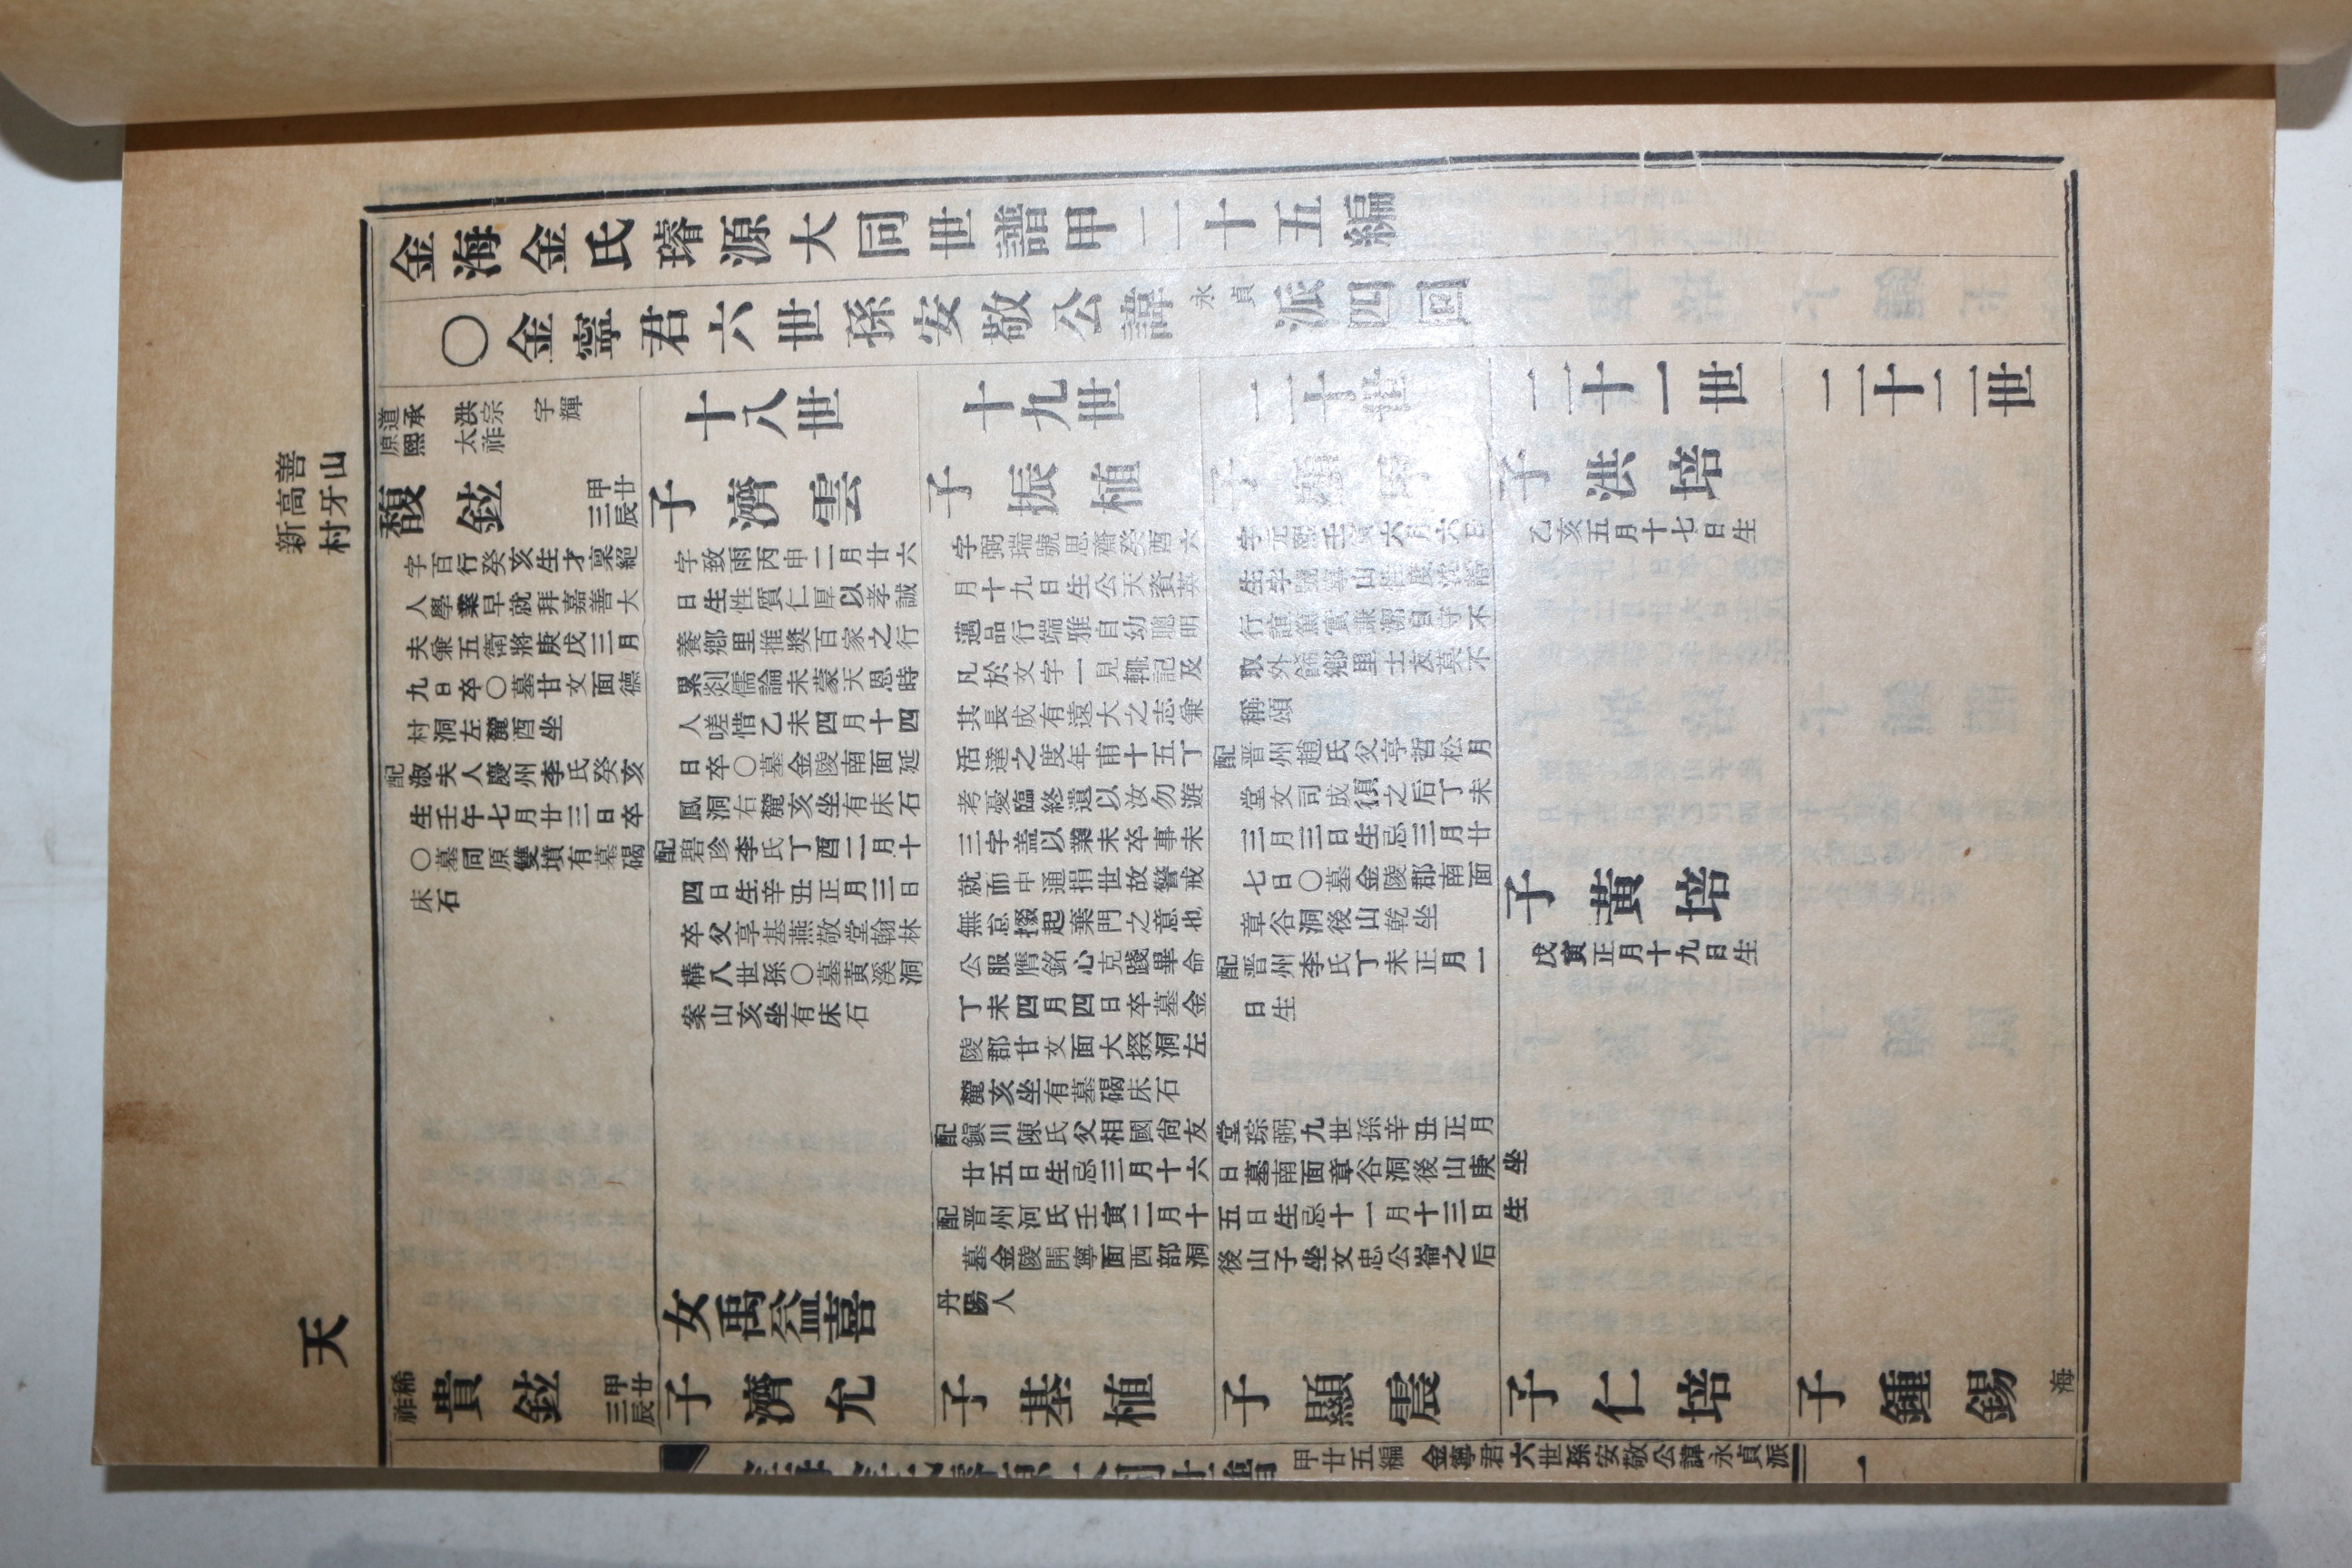 金海金氏璿源大同世譜甲二十五編
〇金寧君六世孫安敬公諱永貞派四回
善山
高牙
新村
道承
原熙
洪宗
太祚
宇輝
馥鉉
甲廿
三辰
字百行癸亥生才稟絕
人學業早就拜嘉善大
夫兼五衛將庚戊三月
九日卒〇墓甘文面德
村洞左麓酉坐
配淑夫人慶州李氏癸亥
生壬午七月廿三日卒
〇墓同原雙墳有墓碣
床石
稀祚
貴鉉
甲廿
三辰
十八世
子濟雲
字致雨丙申二月廿六
日生性質仁厚以孝誠
養鄉里推獎百家之行
累剡儒論未蒙天恩時
人嗟惜乙未四月十四
日卒〇墓金陵南面延
鳳洞右麓亥坐有床石
配碧珍李氏丁酉二月十
四日生辛丑正月三日
卒父亨基燕敬堂翰林
構八世孫〇墓黃溪洞
案山亥坐有床石
女禹益喜
丹陽人
子濟允
十九世
子振植
字弼瑞號思齋癸酉六
月十九日生公天資英
邁品行端雅自幼聰明
凡於文字一見輒記及
其長成有遠大之志兼
活達之度年甫十五丁
考憂臨終遺以汝勿遊
三字盖以業未卒事未
就而中通捐世故警戒
無怠掇起棄門之意也
公服膺銘心克踐畢命
丁未四月四日卒墓金
陵郡甘文面大掇洞左
麓亥坐有墓碣床石
配鎭川陳氏父相國尙友堂琮弼九世孫辛丑正月
廿五日生忌三月十六日墓南面章谷洞後山庚坐
配晋州河氏壬寅二月十五日生忌十一月十三日生
墓金陵開寧面西部洞後山子坐文忠公崙之后
子基植
二十世
子
取外飾鄉里士友莫不
稱頌
配晋州趙氏父亨哲松月
堂文司成須之后丁未
三月三日生忌三月廿
七日〇墓金陵郡南面
章谷洞後山乾坐
配晋州李氏丁未正月一
日生
子顯震
二十一世
子洪培
乙亥五月十七日生
子黃培
戊寅正月十九日生
子仁培
二十二世
子鍾錫
天
海
甲廿五編
金寧君六世孫安敬公諱永貞派
一